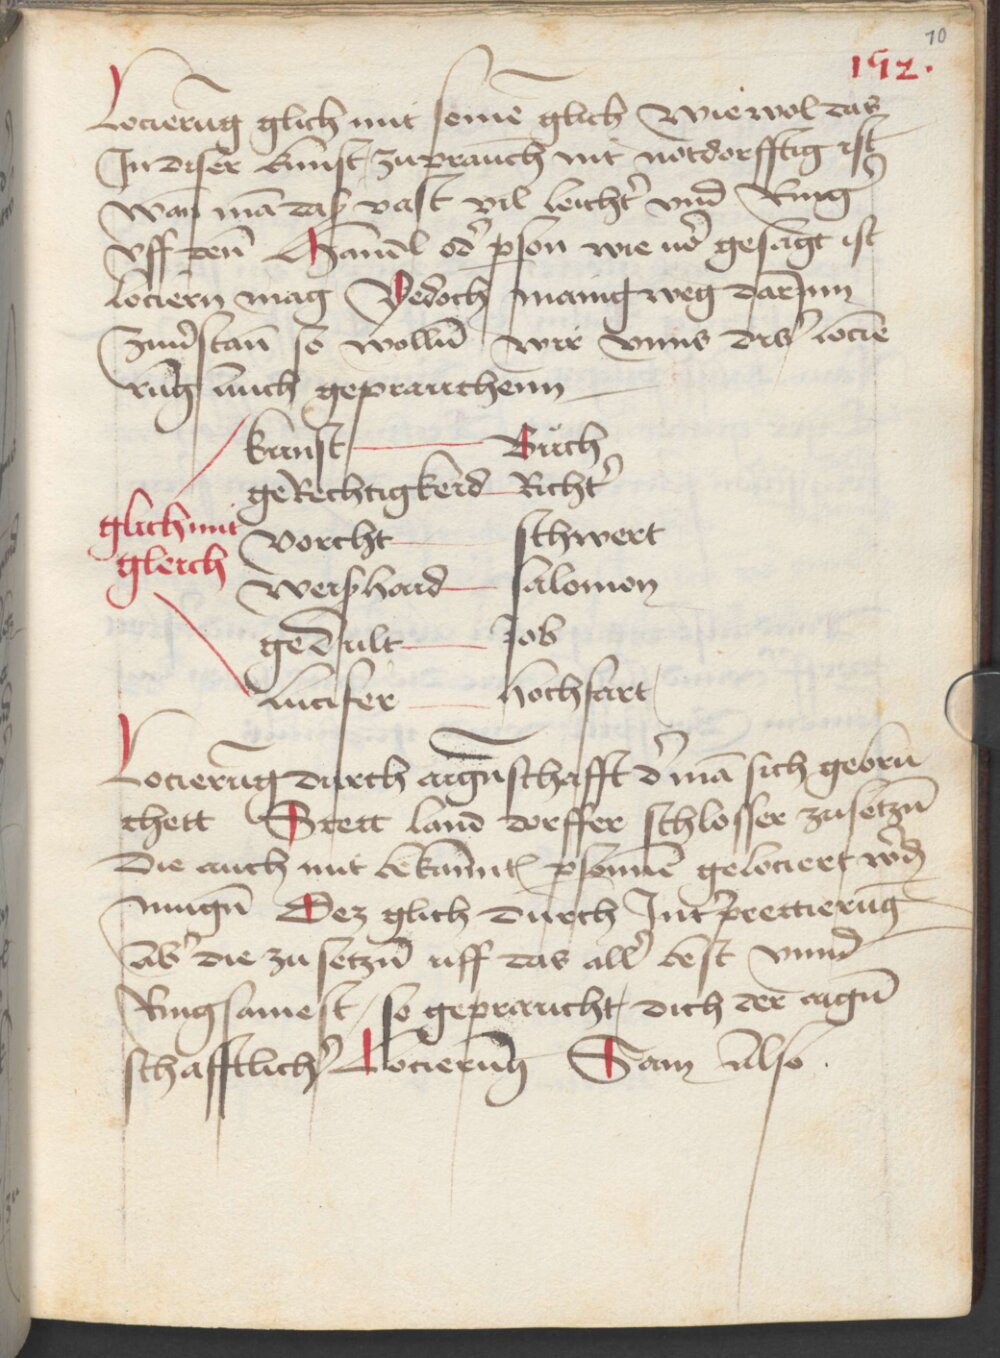 10
192.
Locierūg glich mit seinē glich Wie wol das
In diser kunst zuprauch nit notdorfftig ist
wan mā das vast vil leicht' vnd Ring
vff den Hanndl od' pson wie vor gesagt ist
lociern mag Yedoch manig weg darjnn
zuu'stan so wolln̄ wir vnns dis' locie
rūg auch geprauchenn
kunst Büch
geRechtigkeid Richt'
vorcht schwert
glich mit
gleich
weyshaid salomon
gedult Job
lucifer hochfart
Locierūg durch aign̄schafft d' mā sich geprū
chett Stett land dorffer schlosser zu setzn̄
Die auch mit bekannt psonnē gelociert w'd
mugn̄ Dez glich durch Int'prettierūg
ab' die zu setzn̄ uff das all' best vnnd
Ringsamest / so gepraucht dich der aign̄
schafftlich' Locierūg Sam Also .